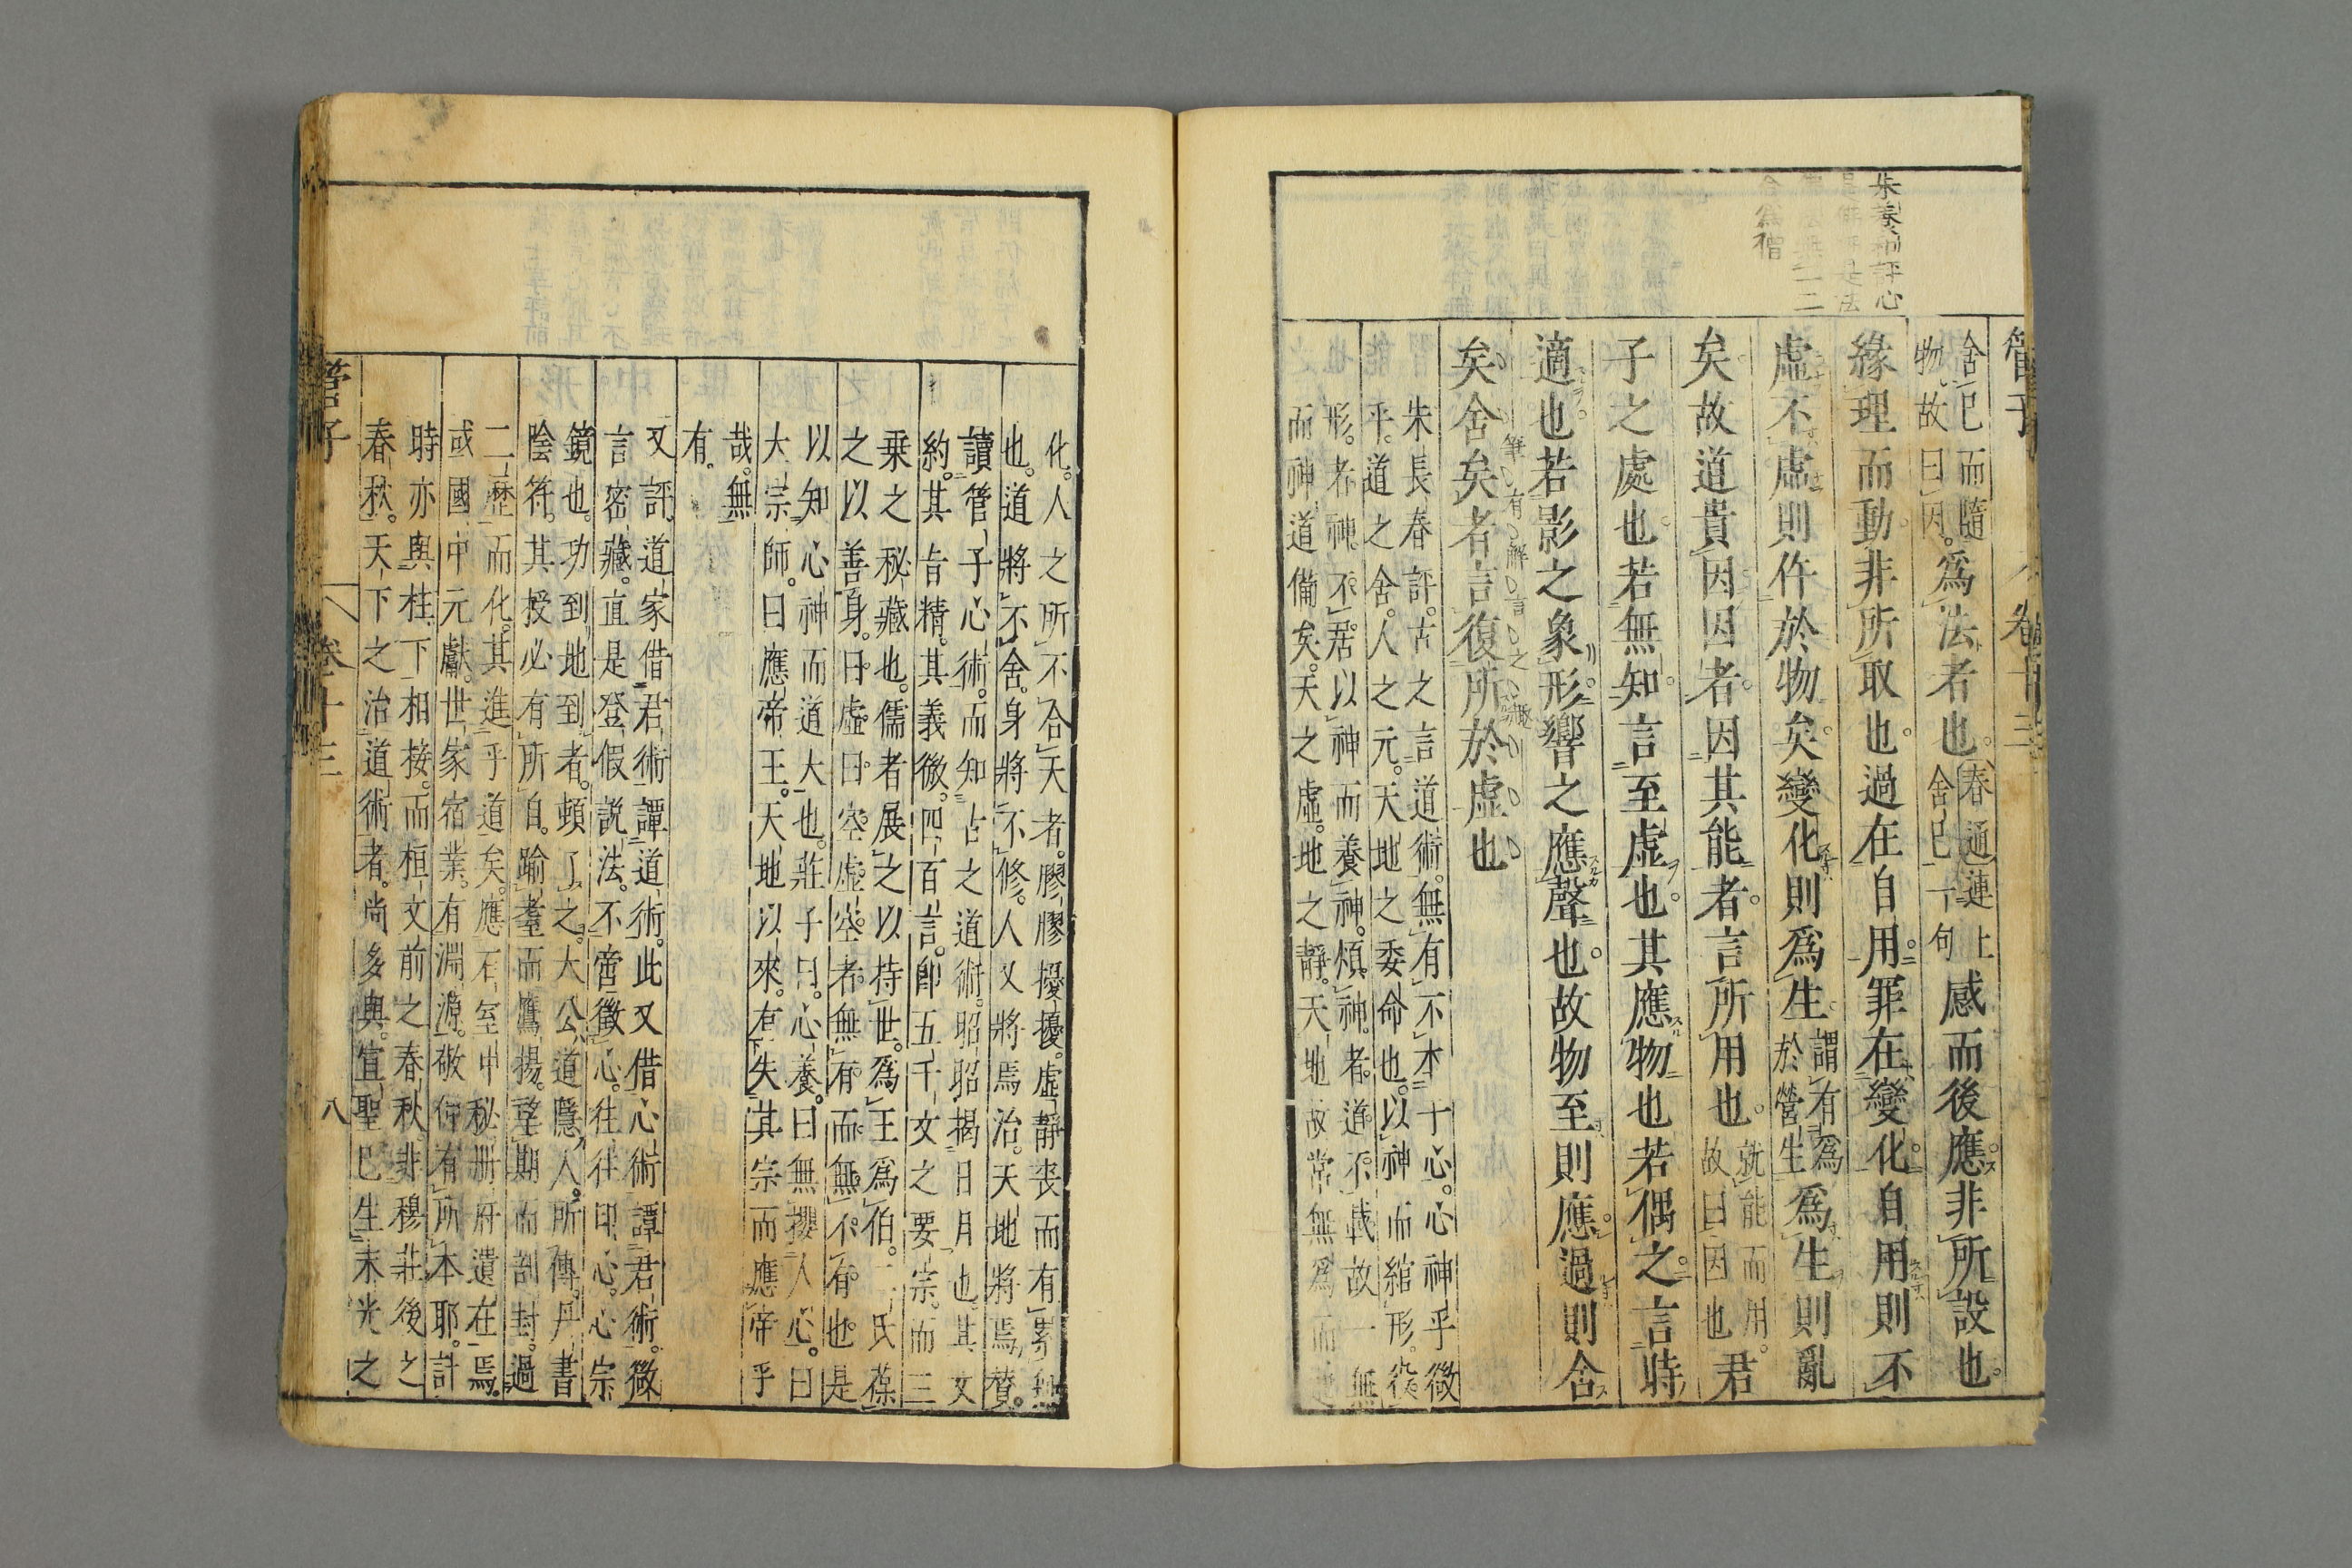 管子　卷十三
朱養和評心
是法
無二
合爲禪
舍己而隨
物故曰因爲法者也春通連上
舍己一句感而後應非所設也
緣理而動非所取也過在自用罪在變化自用則不
虛不虛則仵於物矣變化則爲生謂有爲
於營生爲生則亂
矣故道貴因因者因其能者言所用也就能而用
故曰因也君
子之處也若無知言至虛也其應物也若偶之言時
適也若影之象形響之應聲也故物至則應過則舍
矣舍矣者言復所於虛也
筆有解言之趣
朱長春評古之言道術無有不本于心心神乎徵
乎道之舍人之元天地之委命也以神而綰形役
形者神不居以神而養神煩神者道不載故一無
而神道備矣天之虛地之靜天地故常無爲而
化人之所不合天者膠膠擾擾虛靜喪而有累無
也道將不舍身將不修人又將焉治天地將焉贊
讀管子心術而知古之道術昭昭揭日月也其文
約其旨精其義微四百言即五千文之要宗而三
乗之秘藏也儒者展之以持世爲王爲伯二氏葆
之以善身曰虛曰空虛空者無有而無不有也是
以知心神而道大也莊子曰心養曰無攖人心曰
大宗師曰應帝王天地以來有失其宗而應帝乎
哉無
有
又評道家借君術譚道術此又借心術譚君術微
言密藏直是登假說法不啻徵心往往印心心宗
鏡也功到地到者頓了之太公道隱人所傳丹書
陰符其授必有所自踰耋而鷹揚望期而剖封過
二歷而化其進乎道矣應石室中秘册府遺在焉
或國中元獻世家宿業有淵源敬仲有所本耶計
時亦與柱下相接而桓文前之春秋非穆莊後之
春秋天下之治道術者尚多典宜聖已生末光之
管子　卷十三　八